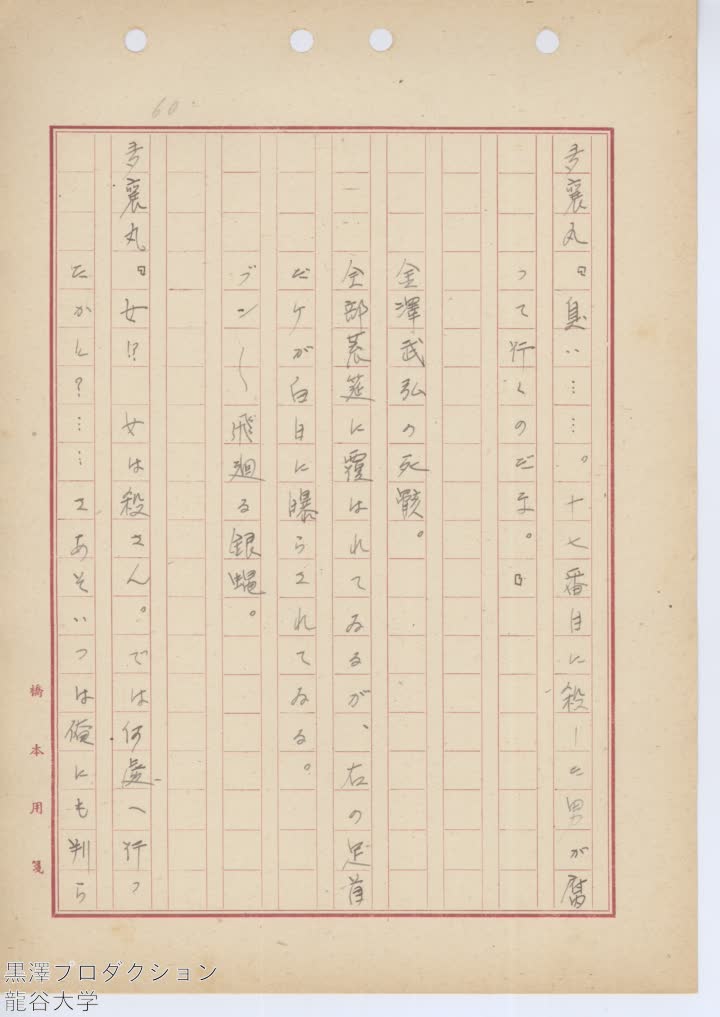 60
多襄丸『臭い……。十七番目に殺した男が腐
って行くのだな。』
金澤武弘の死骸。
全部蓑筵に覆はれてゐるが、右の足首
だけが白日に曝らされてゐる。
ブン〱飛廻る銀蠅。
多襄丸『女!? 女は殺さん。では何處へ行つ
たかと?……さあそいつは俺にも判ら
橋本用箋
黒澤プロダクション
龍谷大学